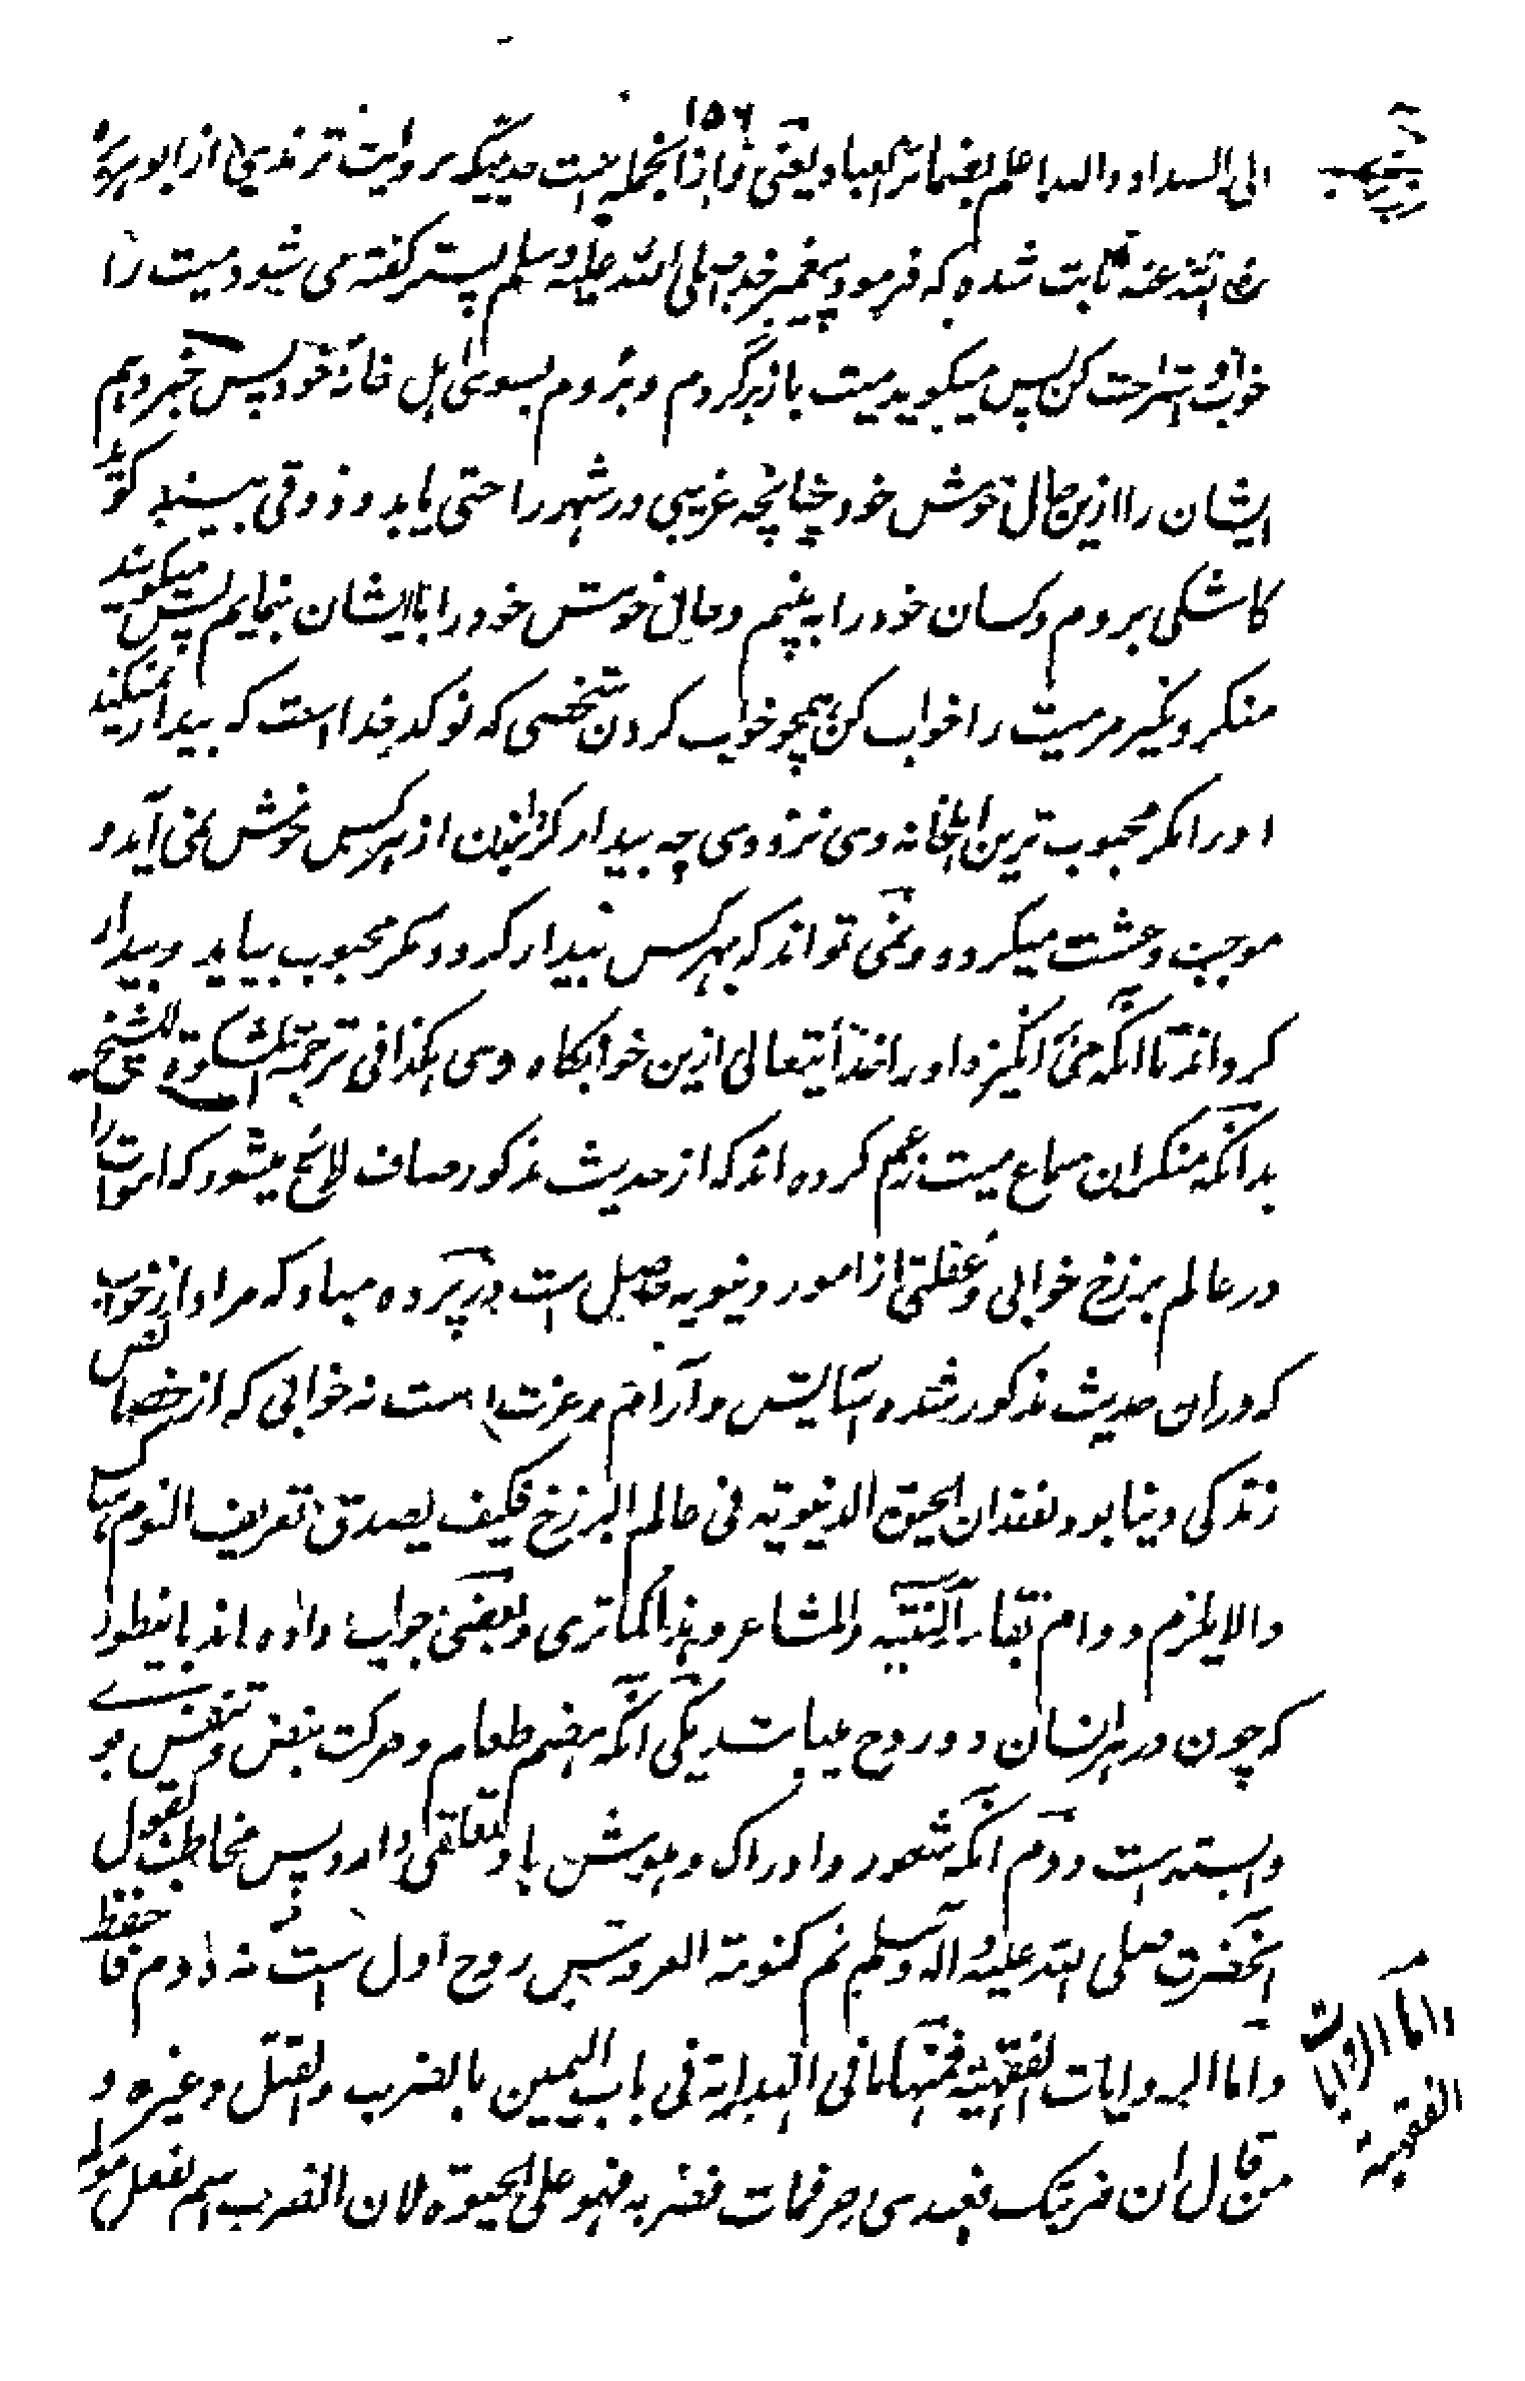 ۱۵۶
الی السداد والله اعلم بضمائر العباد یعنی وازانجمله است حدیثیکه بروایت ترمذی از ابو هریره
رضی الله عنه ثابت شده که فرمود پیغمبر خدا صلی الله علیه وسلم پستر گفته می شود میت را
خواب واستراحت کن پس میگوید میت باز برگردم و بروم بسوی اهل خانهٔ خود پس خبر دهم
ایشان را ازین حال خوش خود چنانچه غریبی در شهر راحتی یابد و ذوقی بیند گوید
کاشکی بروم وکسان خود را به بینم وحال خوش خود را با ایشان نمایم پس میگویند
منکر ونکیر مر میت را خواب کن همچو خواب کردن شخصی که نو کدخدا است که بیدار نمیکند
اورا مگر محبوب ترین اهلخانه وی نزد وی چه بیدار کردن از هر کس خوش نمی آید و
موجب وحشت میگردد ونمی تواند که هر کس بیدار کرد و مگر محبوب بیاید و بیدار
گرداند تا آنکه می انگیزد اورا خدایتعالی ازین خوابگاه وی هکذا فی ترجمة المشکوة للشیخ
بدانکه منکران سماع میت زعم کرده اند که از حدیث مذکور صاف لائح میشود که اموات را
در عالم برزخ خوابی و غفلتی از امور دنیویه حاصل است در پرده مباد که مراد از خواب
که دران حدیث مذکور شده آسایش و آرام و عزت است نه خوابی که از خصائص
زندگی دنیا بود لفقدان الحیوة الدنیویة فی عالم البرزخ فکیف یصدق تعریف النوم
والا یلزم دوام بقاء والمشاعر وهذا کما تری وبعضی جواب داده اند باینطور
که چون در هر انسان دو روح میباشد یکی آنکه هضم طعام وحرکت نبض وتنفس بوے
وابسته است دوم آنکه شعور وادراک وهوش باو تعلقی دارد پس مخاطب بقول
آنحضرت صلی الله علیه واله وسلم نم کنومة العروس روح اول است نه دوم فاحفظ
واما الروایات الفقهیة فمنها ما فی الهدایة فی باب الیمین بالضرب والقتل وغیره و
من قال ان ضربتک فعبدی حر فمات فضربه فهو علی الحیوة لان الضرب اسم لفعل مولم
واما الروایات
الفقهیة